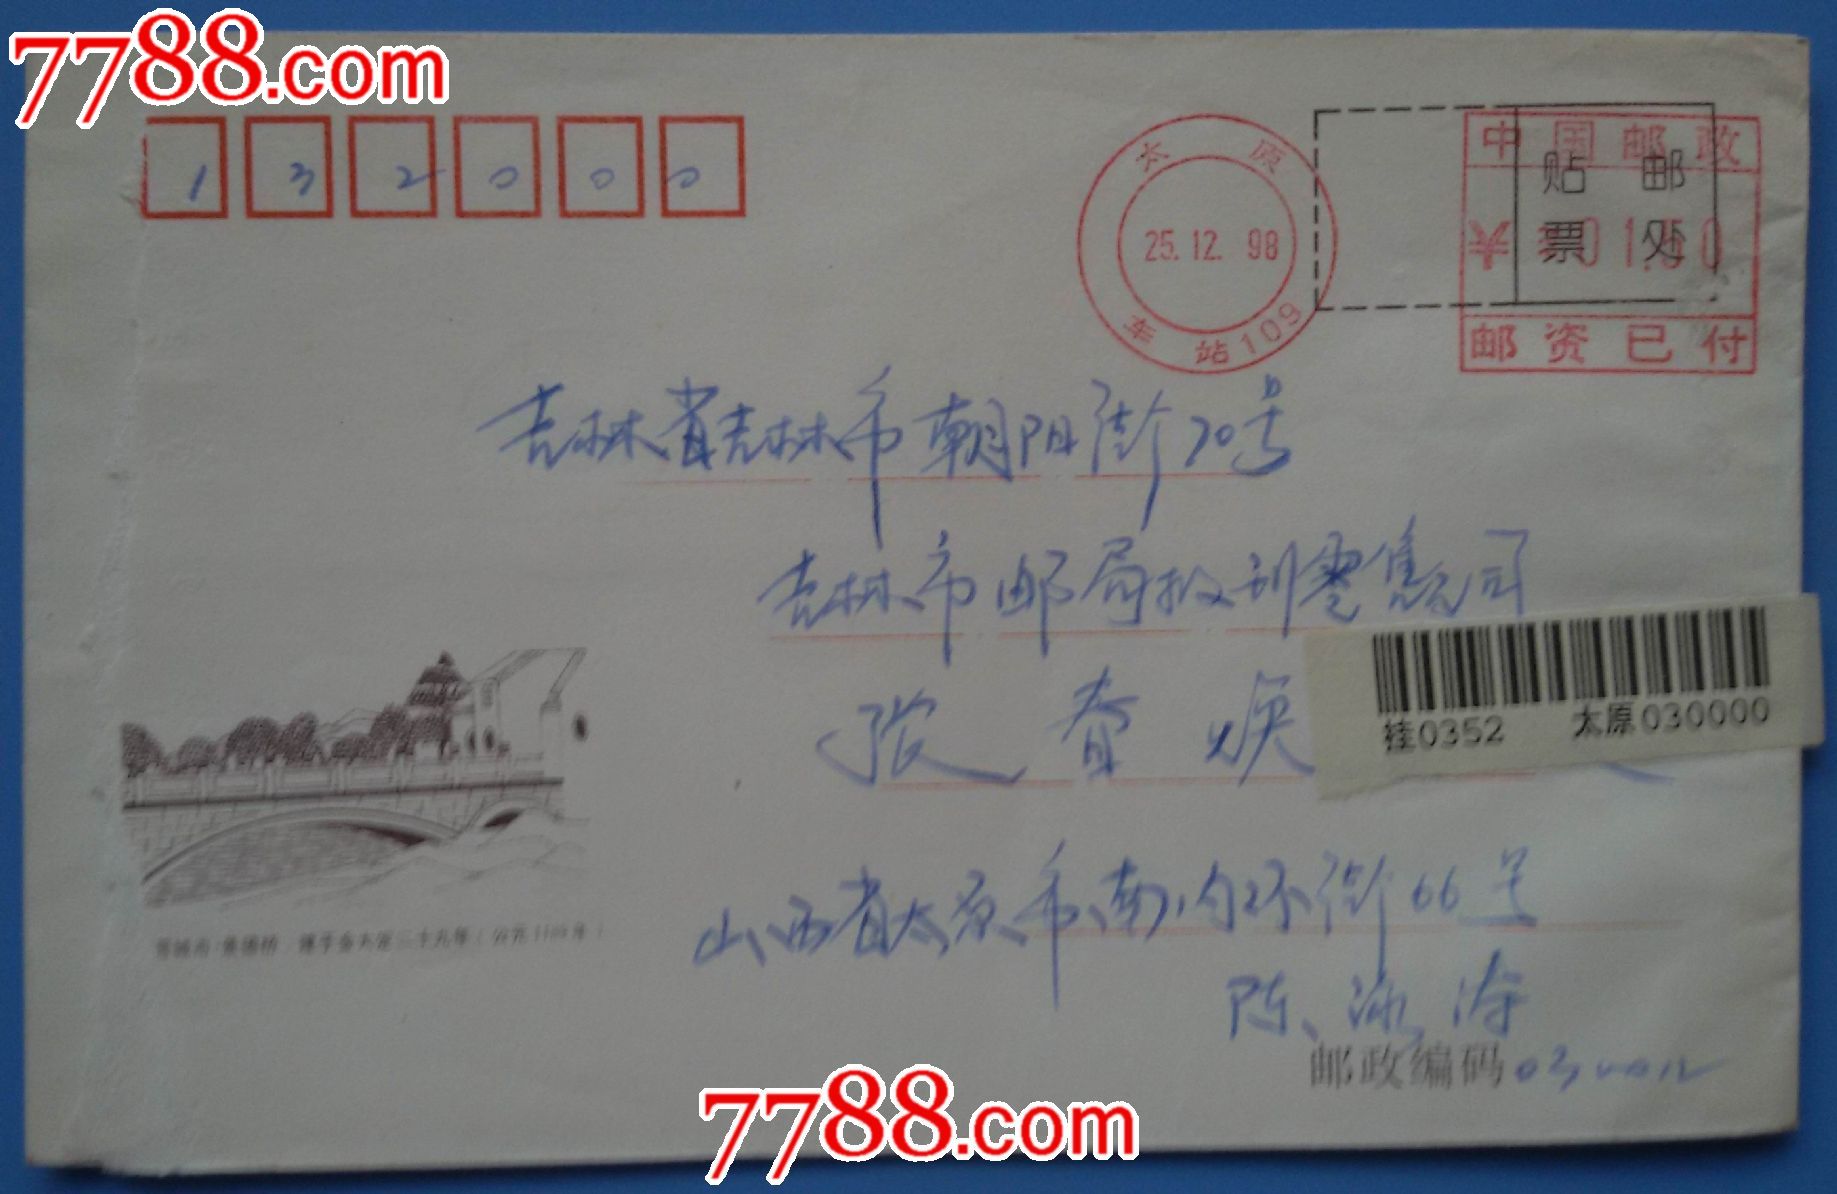 7788.com
132000
太原
25.12.98
车站109
中国邮政
贴邮
票处
¥ 01.50
邮资已付
吉林省吉林市朝阳街70号
吉林市邮局报刊零售公司
张春焕
挂0352 太原030000
山西省太原市南内环街66号
陈泳涛
邮政编码030012
晋城市·景德桥 建于金大定二十九年（公元1189年）
7788.com